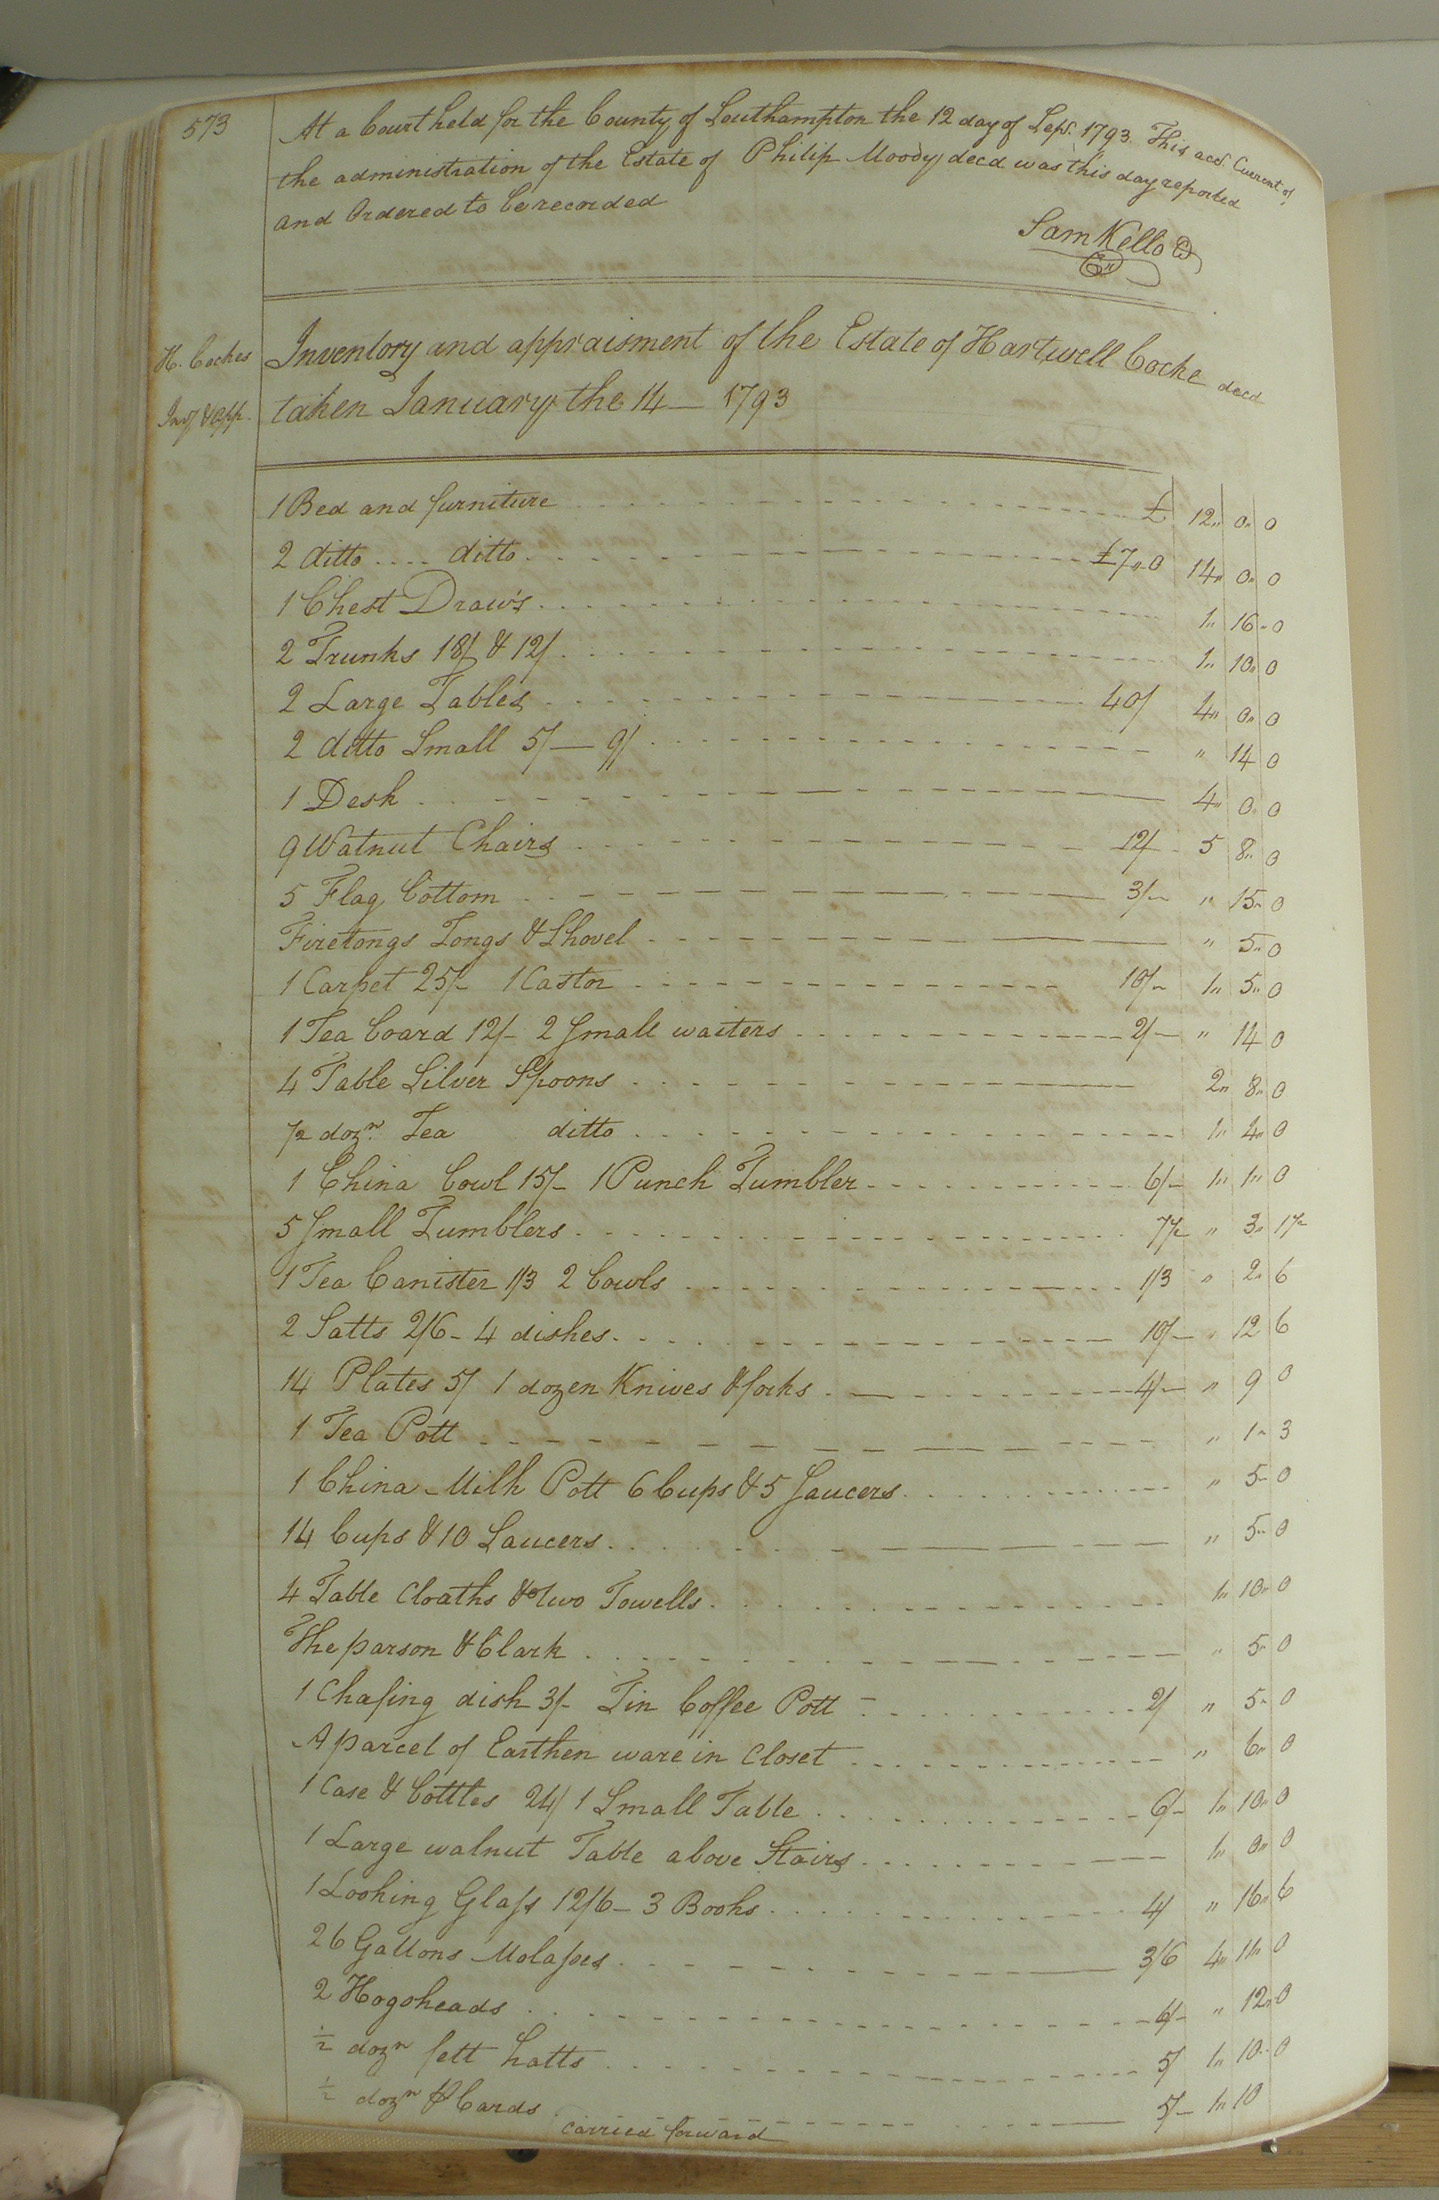 573
At a Court held for the County of Southampton the 12 day of Sept. 1793. This acct. Current of
the administration of the Estate of Philip Moody decd was this day reported
and Ordered to be recorded
Sam Kello
H. Cockes
Invy & App.
Inventory and appraisment of the Estate of Hartwell Cocke decd
taken January the 14 - 1793
1 Bed and furniture £ 12,, 0,, 0
2 ditto .... ditto £7,,0 14,, 0,, 0
1 Chest Draw's 1,, 16,, 0
2 Trunks 18/ & 12/ 1,, 10,, 0
2 Large Tables 40/ 4,, 0,, 0
2 ditto Small 5/ — 9/ ,, 14 0
1 Desk 4,, 0,, 0
9 Walnut Chairs 12/ 5 8,, 0
5 Flag bottom 3/- ,, 15,, 0
Firetongs Tongs & Shovel ,, 5,, 0
1 Carpet 25/- 1 Castor 10/- 1,, 5,, 0
1 Tea board 12/- 2 Small waiters 2/- ,, 14 0
4 Table Silver Spoons 2,, 8,, 0
1/2 dozn. Tea ditto 1,, 4,, 0
1 China bowl 15/- 1 Punch Tumbler 6/- 1,, 1,, 0
5 Small Tumblers 7 1/2 ,, 3,, 1 1/2
1 Tea Canister 1/3 2 bowls 1/3 ,, 2,, 6
2 Satts 2/6 - 4 dishes 10/- ,, 12 6
14 Plates 5/ 1 dozen Knives & forks 4/- ,, 9 0
1 Tea Pott ,, 1,, 3
1 China Milk Pott 6 Cups & 5 Saucers ,, 5,, 0
14 Cups & 10 Saucers ,, 5,, 0
4 Table Cloaths & two Towells 1,, 10,, 0
The parson & Clark ,, 5,, 0
1 Chafing dish 3/- Tin Coffee Pott 2/ ,, 5,, 0
A parcel of Earthen ware in Closet ,, 6,, 0
1 Case & bottles 24/ 1 Small Table 6/- 1,, 10,, 0
1 Large walnut Table above Stairs 1,, 0,, 0
1 Looking Glass 12/6 - 3 Books 4/ ,, 16,, 6
26 Gallons Molasses 3/6 4,, 11,, 0
2 Hogsheads 6/- ,, 12,, 0
1/2 dozn felt hatts 5/ 1,, 10,, 0
1/2 dozn Cards 5/- 1,, 10
carried forward